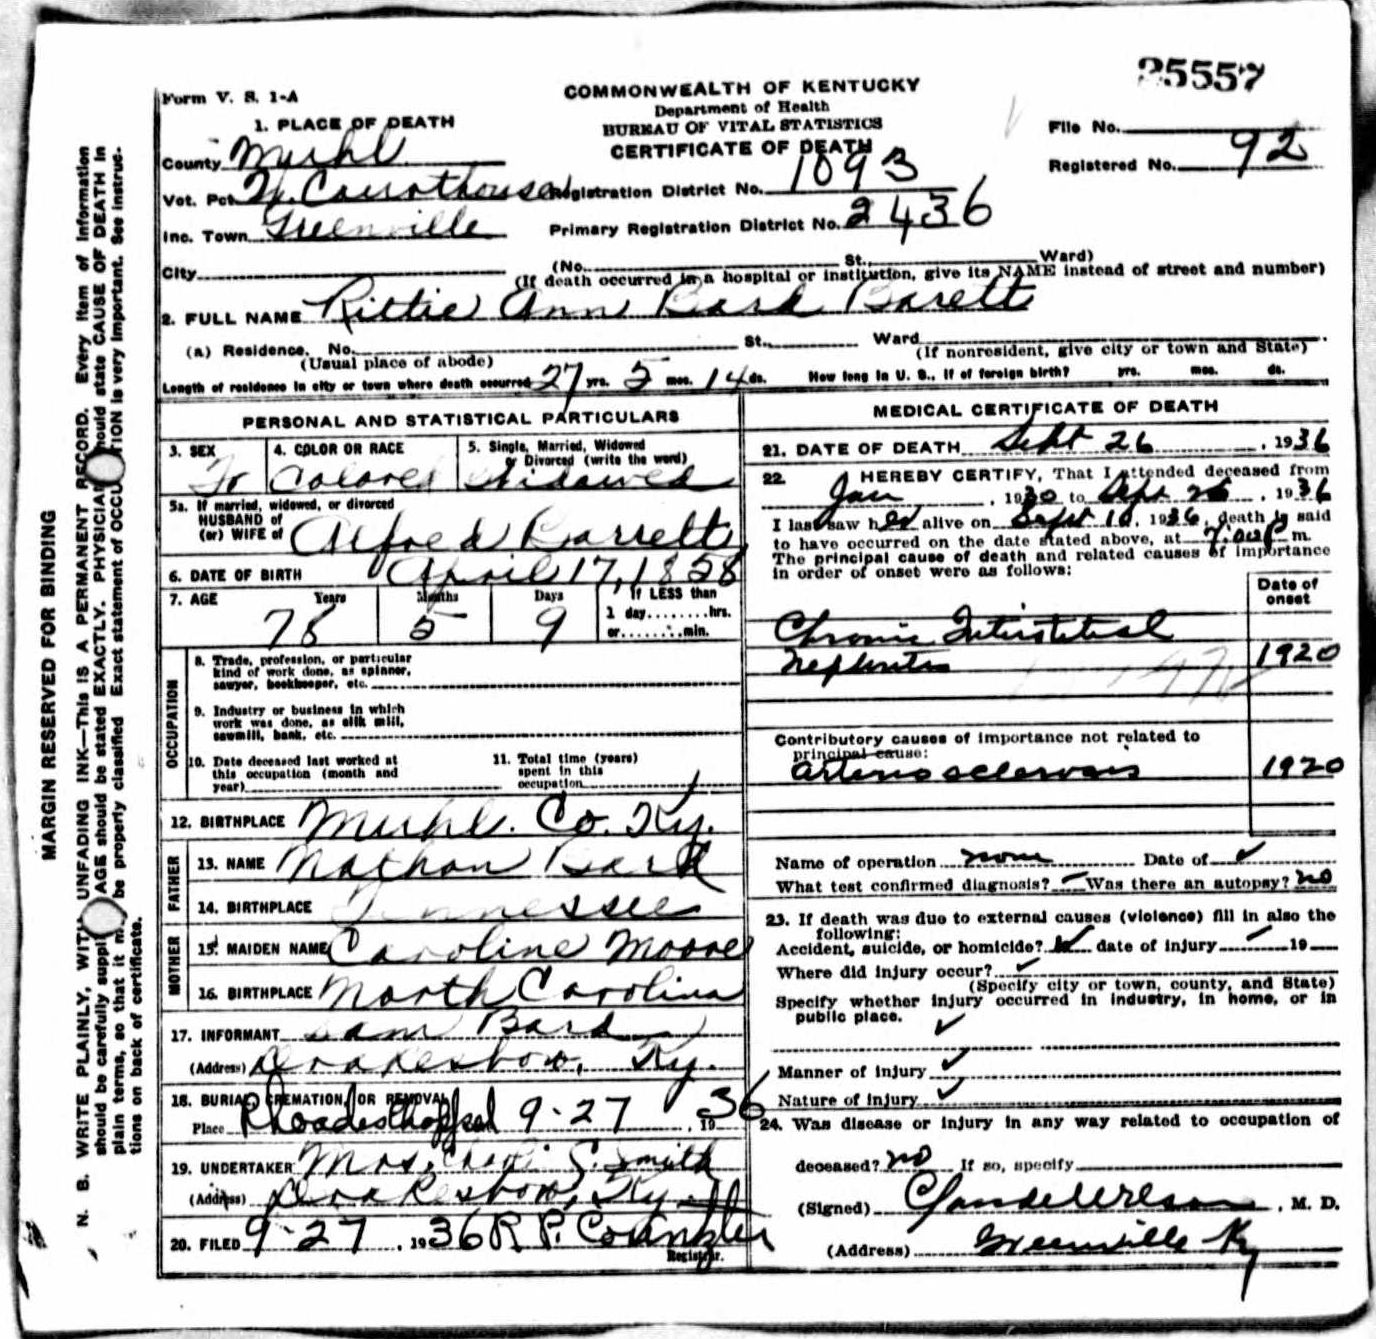 25557
Form V. S. 1-A
COMMONWEALTH OF KENTUCKY
Department of Health
BUREAU OF VITAL STATISTICS
CERTIFICATE OF DEATH
File No.
Registered No. 92
1. PLACE OF DEATH
County Muhl
Vot. Pct. N. Courthouse Registration District No. 1093
Inc. Town Greenville Primary Registration District No. 2436
City (No. St., Ward)
(If death occurred in a hospital or institution, give its NAME instead of street and number)
2. FULL NAME Kittie Ann Bard Barett
(a) Residence. No. St., Ward
(Usual place of abode) (If nonresident, give city or town and State)
Length of residence in city or town where death occurred 27 yrs. 5 mos. 14 ds. How long in U. S., if of foreign birth? yrs. mos. ds.
PERSONAL AND STATISTICAL PARTICULARS
3. SEX 4. COLOR OR RACE 5. Single, Married, Widowed
or Divorced (write the word)
Colored Widowed
5a. If married, widowed, or divorced
HUSBAND of
(or) WIFE of Alfred Barrett
6. DATE OF BIRTH April 17, 1858
7. AGE Years Months Days If LESS than
1 day........hrs.
or........min.
78 5 9
OCCUPATION
8. Trade, profession, or particular
kind of work done, as spinner,
sawyer, bookkeeper, etc.
9. Industry or business in which
work was done, as silk mill,
sawmill, bank, etc.
10. Date deceased last worked at
this occupation (month and
year)
11. Total time (years)
spent in this
occupation
12. BIRTHPLACE Muhl. Co. Ky.
FATHER
13. NAME Nathan Bard
14. BIRTHPLACE Tennessee
MOTHER
15. MAIDEN NAME Caroline Moore
16. BIRTHPLACE North Carolina
17. INFORMANT Sam Bard
(Address) Drakesboro, Ky.
18. BURIAL, CREMATION, OR REMOVAL
Place Rhoades Chapel 9-27, 1936
19. UNDERTAKER Mrs. S. Smith
(Address) Drakesboro, Ky.
20. FILED 9-27, 1936 R. P.
Registrar.
MEDICAL CERTIFICATE OF DEATH
21. DATE OF DEATH Sept 26, 1936
22. I HEREBY CERTIFY, That I attended deceased from
Jan, 1930 to Sept 26, 1936
I last saw her alive on Sept 10, 1936, death is said
to have occurred on the date stated above, at m.
The principal cause of death and related causes of importance
in order of onset were as follows:
Date of
onset
Chronic Interstitial
Nephritis 1920
Contributory causes of importance not related to
principal cause:
arteriosclerosis 1920
Name of operation none Date of ✓
What test confirmed diagnosis? – Was there an autopsy? no
23. If death was due to external causes (violence) fill in also the
following:
Accident, suicide, or homicide? date of injury 19
Where did injury occur? ✓
(Specify city or town, county, and State)
Specify whether injury occurred in industry, in home, or in
public place.
✓
Manner of injury ✓
Nature of injury ✓
24. Was disease or injury in any way related to occupation of
deceased? no If so, specify
(Signed) Claude Wilson, M. D.
(Address) Greenville Ky
MARGIN RESERVED FOR BINDING
N. B. WRITE PLAINLY, WITH UNFADING INK—This IS A PERMANENT RECORD. Every item of information
should be carefully supplied AGE should be stated EXACTLY. PHYSICIAN should state CAUSE OF DEATH in
plain terms, so that it m be properly classified. Exact statement of OCCUPATION is very important. See instruc-
tions on back of certificate.